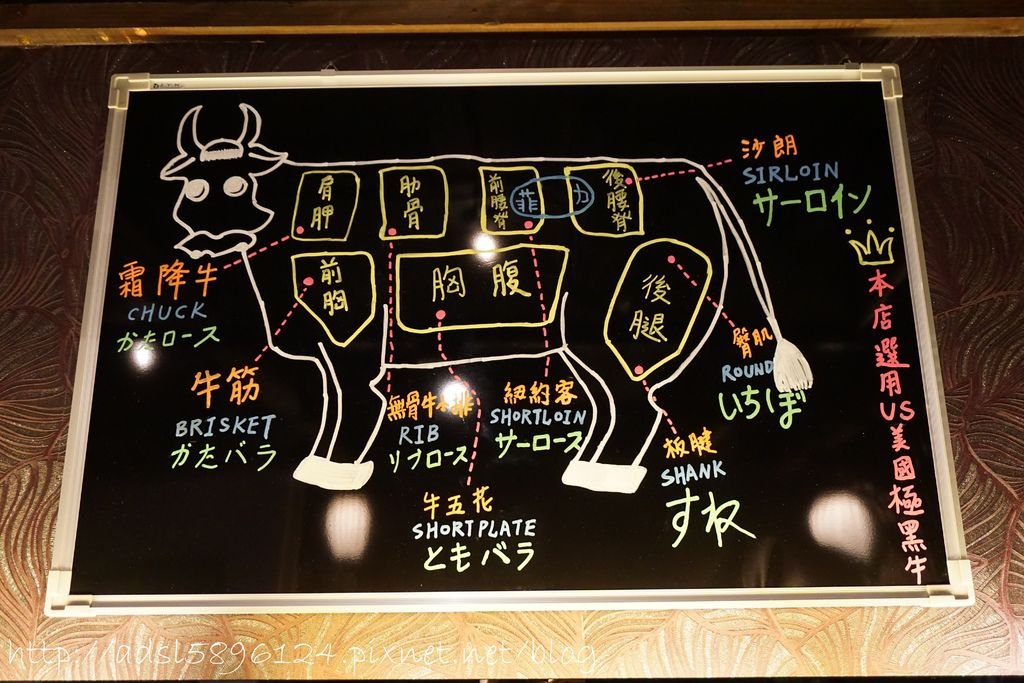 肩胛
肋骨
前腰脊
菲力
後腰脊
沙朗
SIRLOIN
サーロイン
霜降牛
CHUCK
かたロース
前胸
胸腹
後腿
牛筋
BRISKET
かたバラ
無骨牛小排
RIB
リブロース
紐約客
SHORTLOIN
サーロース
臀肌
ROUND
いちぼ
板腱
SHANK
すね
牛五花
SHORTPLATE
ともバラ
本店選用US美國極黑牛
http://adsl5896124.pixnet.net/blog